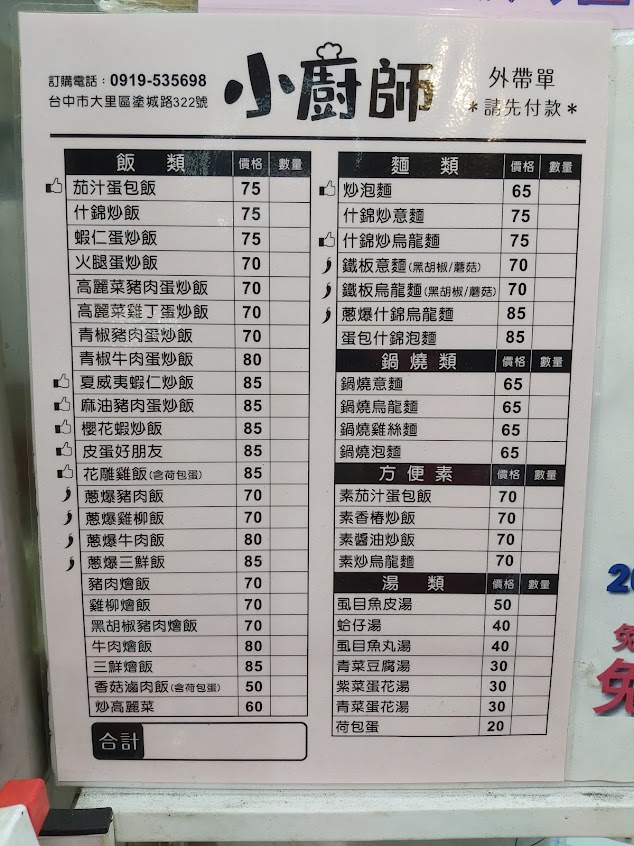 訂購電話：0919-535698
台中市大里區塗城路322號
小廚師
外帶單
＊請先付款＊
飯類 價格 數量
茄汁蛋包飯 75
什錦炒飯 75
蝦仁蛋炒飯 75
火腿蛋炒飯 70
高麗菜豬肉蛋炒飯 70
高麗菜雞丁蛋炒飯 70
青椒豬肉蛋炒飯 70
青椒牛肉蛋炒飯 80
夏威夷蝦仁炒飯 85
麻油豬肉蛋炒飯 85
櫻花蝦炒飯 85
皮蛋好朋友 85
花雕雞飯(含荷包蛋) 85
蔥爆豬肉飯 70
蔥爆雞柳飯 70
蔥爆牛肉飯 80
蔥爆三鮮飯 85
豬肉燴飯 70
雞柳燴飯 70
黑胡椒豬肉燴飯 70
牛肉燴飯 80
三鮮燴飯 85
香菇滷肉飯(含荷包蛋) 50
炒高麗菜 60
合計
麵類 價格 數量
炒泡麵 65
什錦炒意麵 75
什錦炒烏龍麵 75
鐵板意麵(黑胡椒/蘑菇) 70
鐵板烏龍麵(黑胡椒/蘑菇) 70
蔥爆什錦烏龍麵 85
蛋包什錦泡麵 85
鍋燒類 價格 數量
鍋燒意麵 65
鍋燒烏龍麵 65
鍋燒雞絲麵 65
鍋燒泡麵 65
方便素 價格 數量
素茄汁蛋包飯 70
素香椿炒飯 70
素醬油炒飯 70
素炒烏龍麵 70
湯類 價格 數量
虱目魚皮湯 50
蛤仔湯 40
虱目魚丸湯 40
青菜豆腐湯 30
紫菜蛋花湯 30
青菜蛋花湯 30
荷包蛋 20
20
免